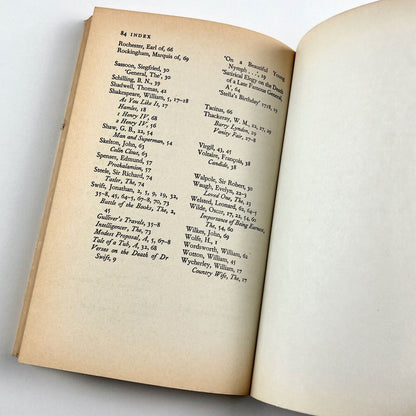 84 INDEX
Rochester, Earl of, 66
Rockingham, Marquis of, 69
Sassoon, Siegfried, 30
'General, The', 30
Schilling, B. N., 39
Shadwell, Thomas, 42
Shakespeare, William, 5, 17-18
As You Like It, 17
Hamlet, 18
1 Henry IV, 68
2 Henry IV, 56
Shaw, G. B., 23, 54
Man and Superman, 54
Skelton, John, 63
Colin Clout, 63
Spenser, Edmund, 57
Prothalamion, 57
Steele, Sir Richard, 74
Tatler, The, 74
Swift, Jonathan, 2, 5, 9, 19, 32,
35-8, 45, 64-5, 67-8, 70, 73
Battle of the Books, The, 2,
45
Gulliver's Travels, 35-8
Intelligencer, The, 73
Modest Proposal, A, 5, 67-8
Tale of a Tub, A, 32, 68
Verses on the Death of Dr
Swift, 9
'On a Beautiful Young
Nymph . . .', 19
'Satirical Elegy on the Death
of a Late Famous General,
A', 64
'Stella's Birthday' 1718, 19
Tacitus, 66
Thackeray, W. M., 22, 27, 29
Barry Lyndon, 29
Vanity Fair, 27-8
Virgil, 43, 45
Voltaire, François, 38
Candide, 38
Walpole, Sir Robert, 30
Waugh, Evelyn, 22-3
Loved One, The, 23
Welsted, Leonard, 64-5
Wilde, Oscar, 17, 23, 54, 60
Importance of Being Earnest,
The, 54, 60
Wilkes, John, 69
Wolfe, H., 1
Wordsworth, William, 62
Wotton, William, 45
Wycherley, William, 17
Country Wife, The, 17